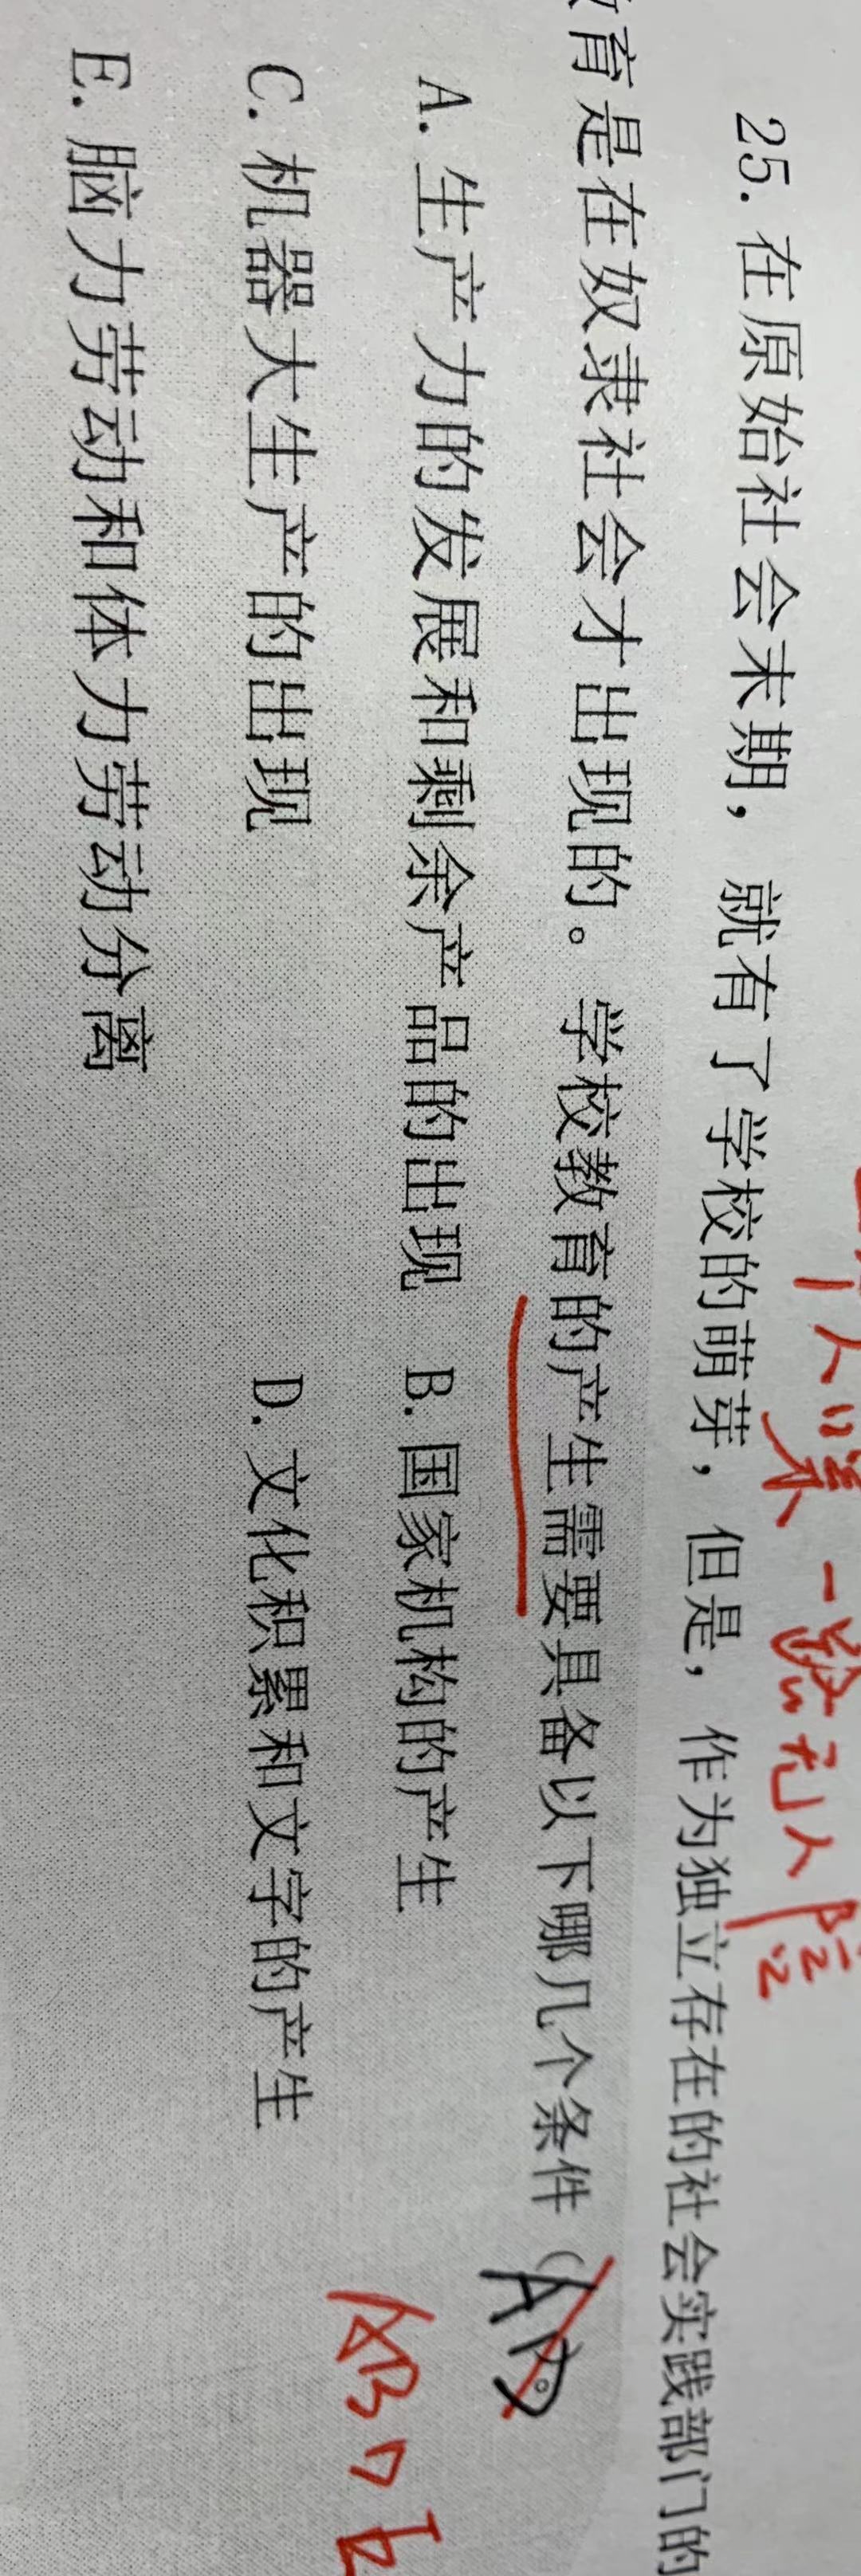 一路无人
25. 在原始社会末期，就有了学校的萌芽，但是，作为独立存在的社会实践部门的
育是在奴隶社会才出现的。学校教育的产生需要具备以下哪几个条件（AD）。
A. 生产力的发展和剩余产品的出现 B. 国家机构的产生
C. 机器大生产的出现 D. 文化积累和文字的产生
E. 脑力劳动和体力劳动分离
ABDE